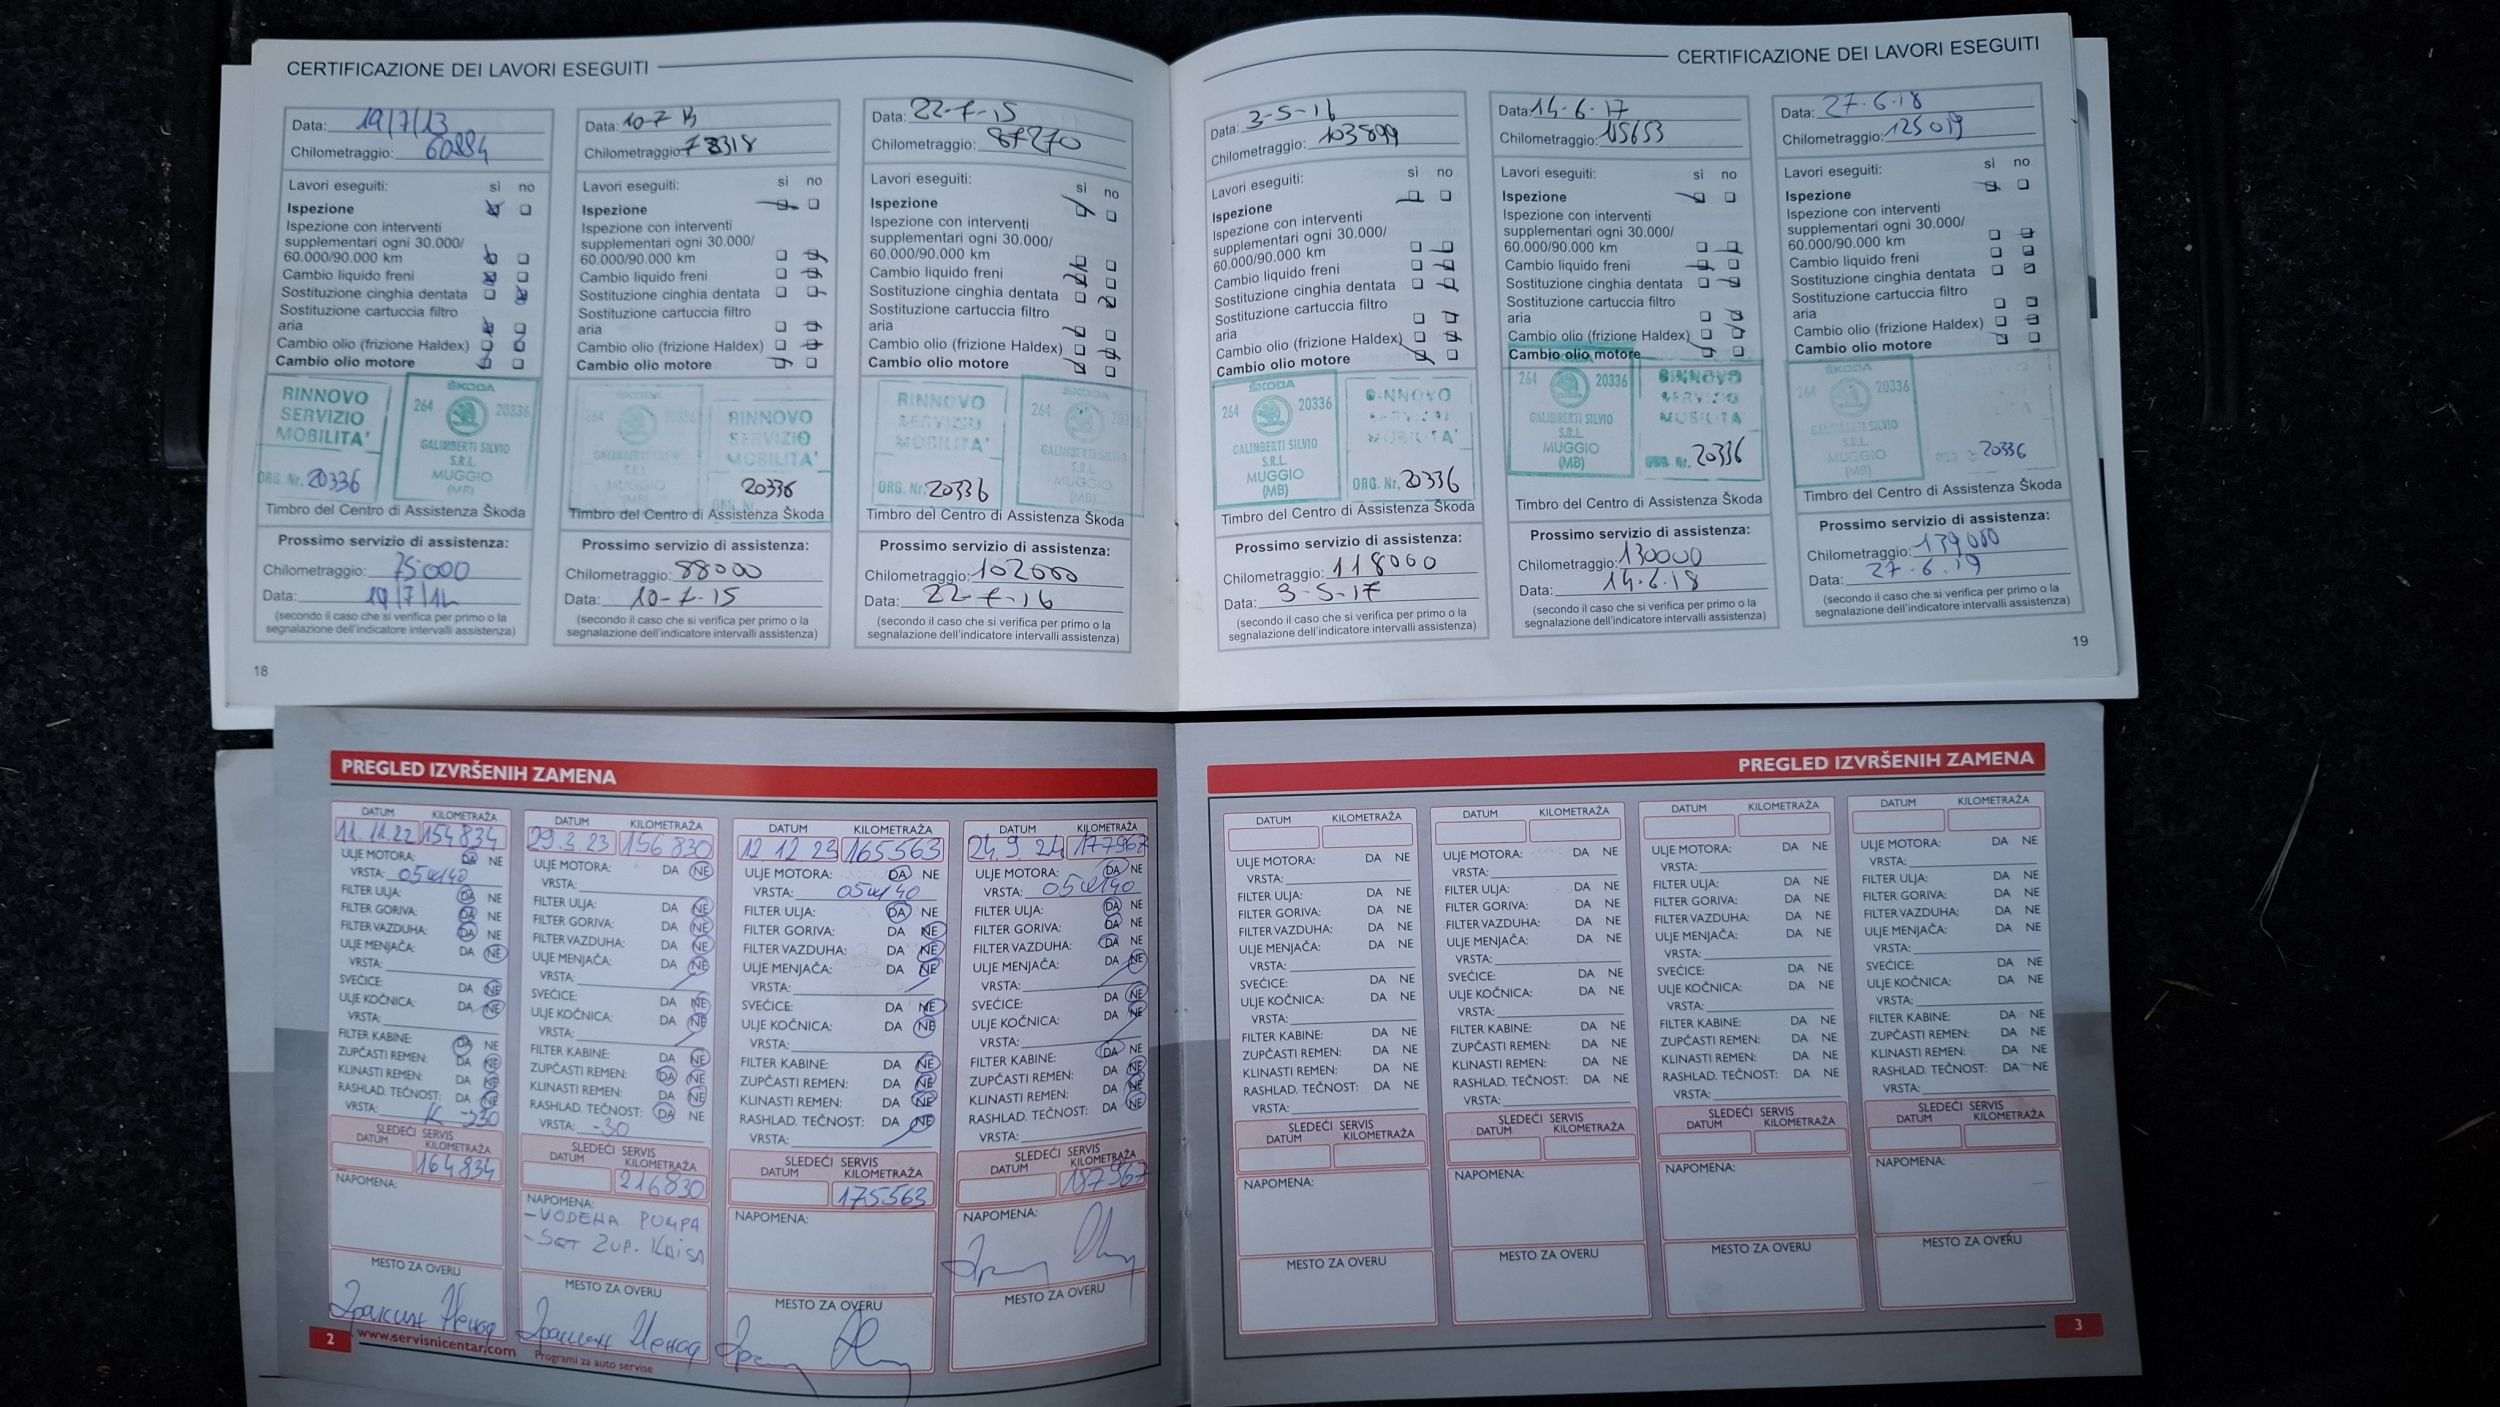 CERTIFICAZIONE DEI LAVORI ESEGUITI
Data: 19/7/13
Chilometraggio: 60884
Lavori eseguiti: sì no
Ispezione
Ispezione con interventi
supplementari ogni 30.000/
60.000/90.000 km
Cambio liquido freni
Sostituzione cinghia dentata
Sostituzione cartuccia filtro
aria
Cambio olio (frizione Haldex)
Cambio olio motore
RINNOVO
SERVIZIO
MOBILITA'
ORG. Nr. 20336
ŠKODA
264 20336
GALIMBERTI SILVIO
S.R.L.
MUGGIO
(MB)
Timbro del Centro di Assistenza Škoda
Prossimo servizio di assistenza:
Chilometraggio: 75000
Data: 19/7/14
(secondo il caso che si verifica per primo o la
segnalazione dell'indicatore intervalli assistenza)
Data: 10-7
Chilometraggio:
Lavori eseguiti: sì no
Ispezione
Ispezione con interventi
supplementari ogni 30.000/
60.000/90.000 km
Cambio liquido freni
Sostituzione cinghia dentata
Sostituzione cartuccia filtro
aria
Cambio olio (frizione Haldex)
Cambio olio motore
RINNOVO
SERVIZIO
MOBILITA'
20336
Timbro del Centro di Assistenza Škoda
Prossimo servizio di assistenza:
Chilometraggio: 88000
Data: 10-7-15
(secondo il caso che si verifica per primo o la
segnalazione dell'indicatore intervalli assistenza)
Data: 22-7-15
Chilometraggio: 87270
Lavori eseguiti: sì no
Ispezione
Ispezione con interventi
supplementari ogni 30.000/
60.000/90.000 km
Cambio liquido freni
Sostituzione cinghia dentata
Sostituzione cartuccia filtro
aria
Cambio olio (frizione Haldex)
Cambio olio motore
RINNOVO
SERVIZIO
MOBILITA'
ORG. Nr. 20336
ŠKODA
264 20336
GALIMBERTI SILVIO
S.R.L.
MUGGIO
(MB)
Timbro del Centro di Assistenza Škoda
Prossimo servizio di assistenza:
Chilometraggio: 102000
Data: 22-7-16
(secondo il caso che si verifica per primo o la
segnalazione dell'indicatore intervalli assistenza)
18
CERTIFICAZIONE DEI LAVORI ESEGUITI
Data: 3-5-16
Chilometraggio: 103899
Lavori eseguiti: sì no
Ispezione
Ispezione con interventi
supplementari ogni 30.000/
60.000/90.000 km
Cambio liquido freni
Sostituzione cinghia dentata
Sostituzione cartuccia filtro
aria
Cambio olio (frizione Haldex)
Cambio olio motore
ŠKODA
264 20336
GALIMBERTI SILVIO
S.R.L.
MUGGIO
(MB)
ORG. Nr. 20336
Timbro del Centro di Assistenza Škoda
Prossimo servizio di assistenza:
Chilometraggio: 118000
Data: 3-5-17
(secondo il caso che si verifica per primo o la
segnalazione dell'indicatore intervalli assistenza)
Data: 14-6-17
Chilometraggio: 115653
Lavori eseguiti: sì no
Ispezione
Ispezione con interventi
supplementari ogni 30.000/
60.000/90.000 km
Cambio liquido freni
Sostituzione cinghia dentata
Sostituzione cartuccia filtro
aria
Cambio olio (frizione Haldex)
Cambio olio motore
264 20336
GALIMBERTI SILVIO
S.R.L.
MUGGIO
(MB)
RINNOVO
SERVIZIO
MOBILITA
20336
Timbro del Centro di Assistenza Škoda
Prossimo servizio di assistenza:
Chilometraggio: 130000
Data: 14.6.18
(secondo il caso che si verifica per primo o la
segnalazione dell'indicatore intervalli assistenza)
Data: 27.6.18
Chilometraggio: 125019
Lavori eseguiti: sì no
Ispezione
Ispezione con interventi
supplementari ogni 30.000/
60.000/90.000 km
Cambio liquido freni
Sostituzione cinghia dentata
Sostituzione cartuccia filtro
aria
Cambio olio (frizione Haldex)
Cambio olio motore
ŠKODA
264 20336
GALIMBERTI SILVIO
S.R.L.
MUGGIO
(MB)
20336
Timbro del Centro di Assistenza Škoda
Prossimo servizio di assistenza:
Chilometraggio: 139000
Data: 27.6.19
(secondo il caso che si verifica per primo o la
segnalazione dell'indicatore intervalli assistenza)
19
PREGLED IZVRŠENIH ZAMENA
DATUM KILOMETRAŽA
11.11.22 154834
ULJE MOTORA: DA NE
VRSTA: 05w140
FILTER ULJA: DA NE
FILTER GORIVA: DA NE
FILTER VAZDUHA: DA NE
ULJE MENJAČA: DA NE
VRSTA:
SVEĆICE: DA NE
ULJE KOČNICA: DA NE
VRSTA:
FILTER KABINE: DA NE
ZUPČASTI REMEN: DA NE
KLINASTI REMEN: DA NE
RASHLAD. TEČNOST: DA NE
VRSTA: K -30
SLEDEĆI SERVIS
DATUM KILOMETRAŽA
164834
NAPOMENA:
MESTO ZA OVERU
DATUM KILOMETRAŽA
29.3.23 156830
ULJE MOTORA: DA NE
VRSTA:
FILTER ULJA: DA NE
FILTER GORIVA: DA NE
FILTER VAZDUHA: DA NE
ULJE MENJAČA: DA NE
VRSTA:
SVEĆICE: DA NE
ULJE KOČNICA: DA NE
VRSTA:
FILTER KABINE: DA NE
ZUPČASTI REMEN: DA NE
KLINASTI REMEN: DA NE
RASHLAD. TEČNOST: DA NE
VRSTA: -30
SLEDEĆI SERVIS
DATUM KILOMETRAŽA
216830
NAPOMENA:
- VODENA PUMPA
- SET ZUP. KAISA
MESTO ZA OVERU
DATUM KILOMETRAŽA
12 12 23 165563
ULJE MOTORA: DA NE
VRSTA: 05w140
FILTER ULJA: DA NE
FILTER GORIVA: DA NE
FILTER VAZDUHA: DA NE
ULJE MENJAČA: DA NE
VRSTA:
SVEĆICE: DA NE
ULJE KOČNICA: DA NE
VRSTA:
FILTER KABINE: DA NE
ZUPČASTI REMEN: DA NE
KLINASTI REMEN: DA NE
RASHLAD. TEČNOST: DA NE
VRSTA:
SLEDEĆI SERVIS
DATUM KILOMETRAŽA
175563
NAPOMENA:
MESTO ZA OVERU
DATUM KILOMETRAŽA
24.9 24 177967
ULJE MOTORA: DA NE
VRSTA: 05w140
FILTER ULJA: DA NE
FILTER GORIVA: DA NE
FILTER VAZDUHA: DA NE
ULJE MENJAČA: DA NE
VRSTA:
SVEĆICE: DA NE
ULJE KOČNICA: DA NE
VRSTA:
FILTER KABINE: DA NE
ZUPČASTI REMEN: DA NE
KLINASTI REMEN: DA NE
RASHLAD. TEČNOST: DA NE
VRSTA:
SLEDEĆI SERVIS
DATUM KILOMETRAŽA
187967
NAPOMENA:
MESTO ZA OVERU
2 www.servisnicentar.com
Programi za auto servise
PREGLED IZVRŠENIH ZAMENA
DATUM KILOMETRAŽA
ULJE MOTORA: DA NE
VRSTA:
FILTER ULJA: DA NE
FILTER GORIVA: DA NE
FILTER VAZDUHA: DA NE
ULJE MENJAČA: DA NE
VRSTA:
SVEĆICE: DA NE
ULJE KOČNICA: DA NE
VRSTA:
FILTER KABINE: DA NE
ZUPČASTI REMEN: DA NE
KLINASTI REMEN: DA NE
RASHLAD. TEČNOST: DA NE
VRSTA:
SLEDEĆI SERVIS
DATUM KILOMETRAŽA
NAPOMENA:
MESTO ZA OVERU
DATUM KILOMETRAŽA
ULJE MOTORA: DA NE
VRSTA:
FILTER ULJA: DA NE
FILTER GORIVA: DA NE
FILTER VAZDUHA: DA NE
ULJE MENJAČA: DA NE
VRSTA:
SVEĆICE: DA NE
ULJE KOČNICA: DA NE
VRSTA:
FILTER KABINE: DA NE
ZUPČASTI REMEN: DA NE
KLINASTI REMEN: DA NE
RASHLAD. TEČNOST: DA NE
VRSTA:
SLEDEĆI SERVIS
DATUM KILOMETRAŽA
NAPOMENA:
MESTO ZA OVERU
DATUM KILOMETRAŽA
ULJE MOTORA: DA NE
VRSTA:
FILTER ULJA: DA NE
FILTER GORIVA: DA NE
FILTER VAZDUHA: DA NE
ULJE MENJAČA: DA NE
VRSTA:
SVEĆICE: DA NE
ULJE KOČNICA: DA NE
VRSTA:
FILTER KABINE: DA NE
ZUPČASTI REMEN: DA NE
KLINASTI REMEN: DA NE
RASHLAD. TEČNOST: DA NE
VRSTA:
SLEDEĆI SERVIS
DATUM KILOMETRAŽA
NAPOMENA:
MESTO ZA OVERU
DATUM KILOMETRAŽA
ULJE MOTORA: DA NE
VRSTA:
FILTER ULJA: DA NE
FILTER GORIVA: DA NE
FILTER VAZDUHA: DA NE
ULJE MENJAČA: DA NE
VRSTA:
SVEĆICE: DA NE
ULJE KOČNICA: DA NE
VRSTA:
FILTER KABINE: DA NE
ZUPČASTI REMEN: DA NE
KLINASTI REMEN: DA NE
RASHLAD. TEČNOST: DA NE
VRSTA:
SLEDEĆI SERVIS
DATUM KILOMETRAŽA
NAPOMENA:
MESTO ZA OVERU
3